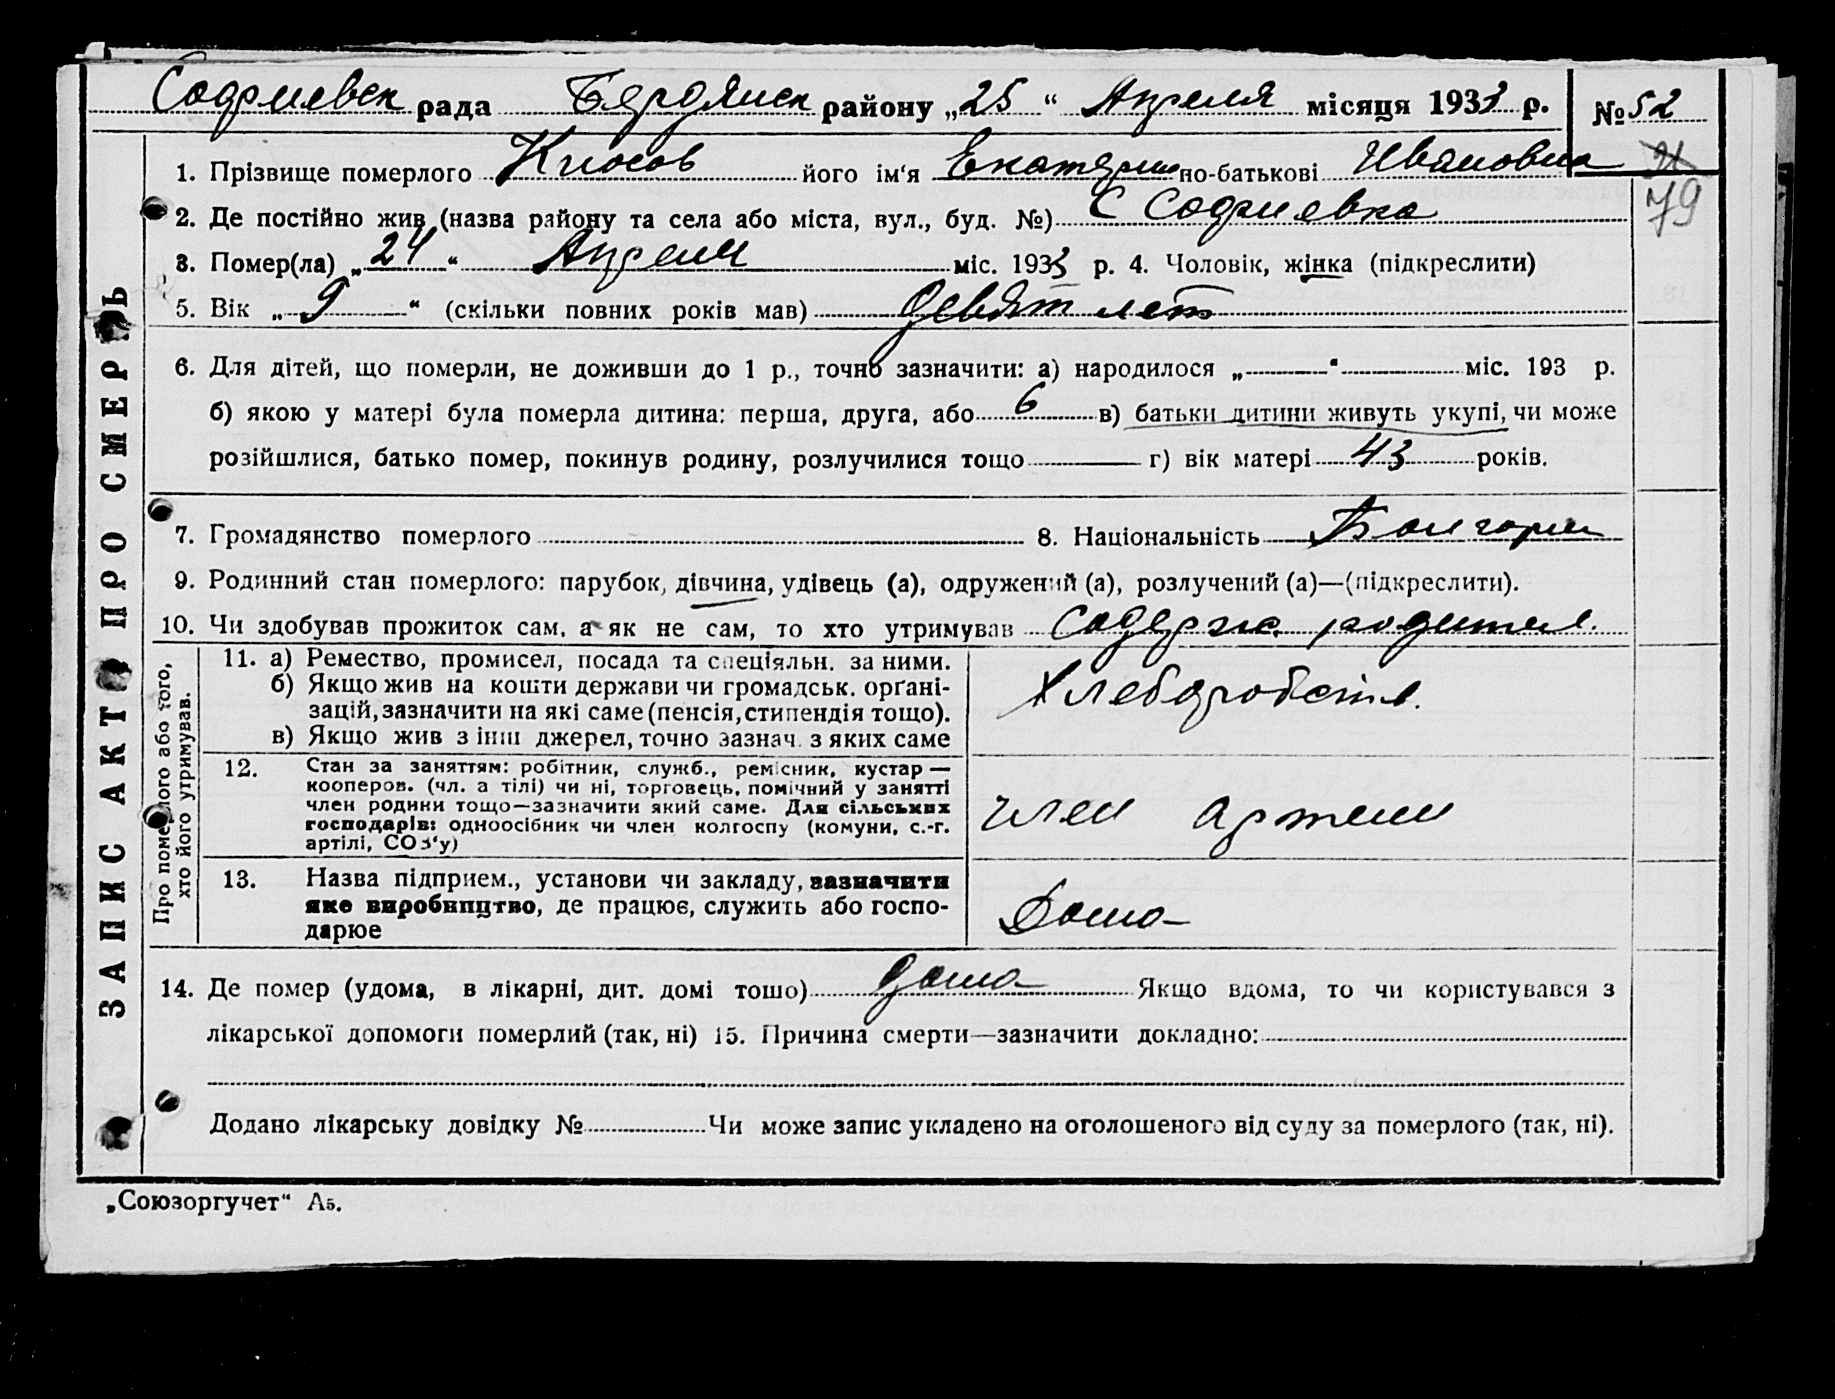 Софиевск рада Бердянск району „25“ Апреля місяця 1933 р. № 52
1. Прізвище померлого Кюсов його ім'я Екатерин по-батькові Ивановна
79
2. Де постійно жив (назва району та села або міста, вул., буд. №) С Софиевка
3. Помер(ла) „24“ Апреля міс. 1933 р. 4. Чоловік, жінка (підкреслити)
5. Вік „9“ (скільки повних років мав) девят лет
6. Для дітей, що померли, не доживши до 1 р., точно зазначити: а) народилося „ “ міс. 193 р.
б) якою у матері була померла дитина: перша, друга, або 6 в) батьки дитини живуть укупі, чи може
розійшлися, батько помер, покинув родину, розлучилися тощо г) вік матері 43 років.
7. Громадянство померлого 8. Національність Болгарин
9. Родинний стан померлого: парубок, дівчина, удівець (а), одружений (а), розлучений (а)—(підкреслити).
10. Чи здобував прожиток сам, а як не сам, то хто утримував содерж. родител.
ЗАПИС АКТУ ПРО СМЕРТЬ
Про померлого або того,
хто його утримував.
11. а) Ремество, промисел, посада та спеціяльн. за ними.
б) Якщо жив на кошти держави чи громадськ. орґані-
зацій, зазначити на які саме (пенсія, стипендія тощо).
в) Якщо жив з інш джерел, точно зазнач. з яких саме
Хлеборобств.
12. Стан за заняттям: робітник, служб., ремісник, кустар —
кооперов. (чл. а тілі) чи ні, торговець, помічний у занятті
член родини тощо—зазначити який саме. Для сільських
господарів: одноосібник чи член колгоспу (комуни, с.-г.
артілі, СОЗ'у)
член артели
13. Назва підприєм., установи чи закладу, зазначити
яке виробництво, де працює, служить або госпо-
дарює
Дома
14. Де помер (удома, в лікарні, дит. домі тощо) дома Якщо вдома, то чи користувався з
лікарської допомоги померлий (так, ні) 15. Причина смерти—зазначити докладно:
Додано лікарську довідку № Чи може запис укладено на оголошеного від суду за померлого (так, ні).
„Союзоргучет“ А5.